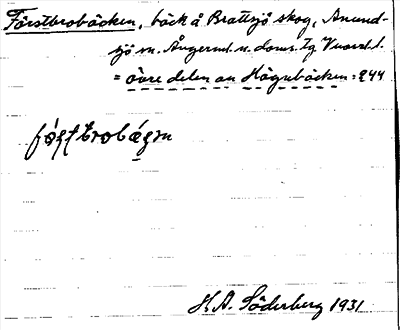 Förstbrobäcken, bäck å Brattsjö skog, Anund-
sjö sn. Ångerml. n. doms. tg
= övre delen av Högnbäcken: 244
H.A. Söderberg 1931